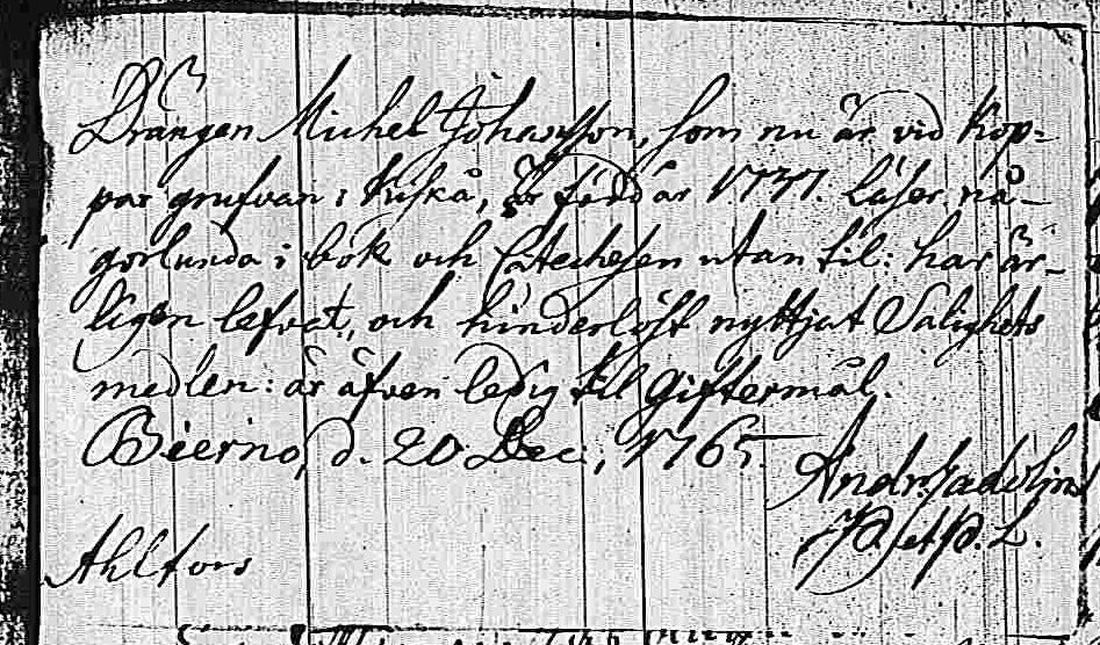 Drängen Michel Johansson, som nu är vid Kop-
par grufvan i Kiskå, är född år 1737. läser nå-
gorlunda i bok och Catechesen utan til: har är-
ligen lefvat, och hinderlöst nyttjat Salighets
medlen: är äfven ledig til giftermål.
Bierno, d. 20 Dec:, 1765.
Andr. Gadolin
P. et P. L.
Ahlfors